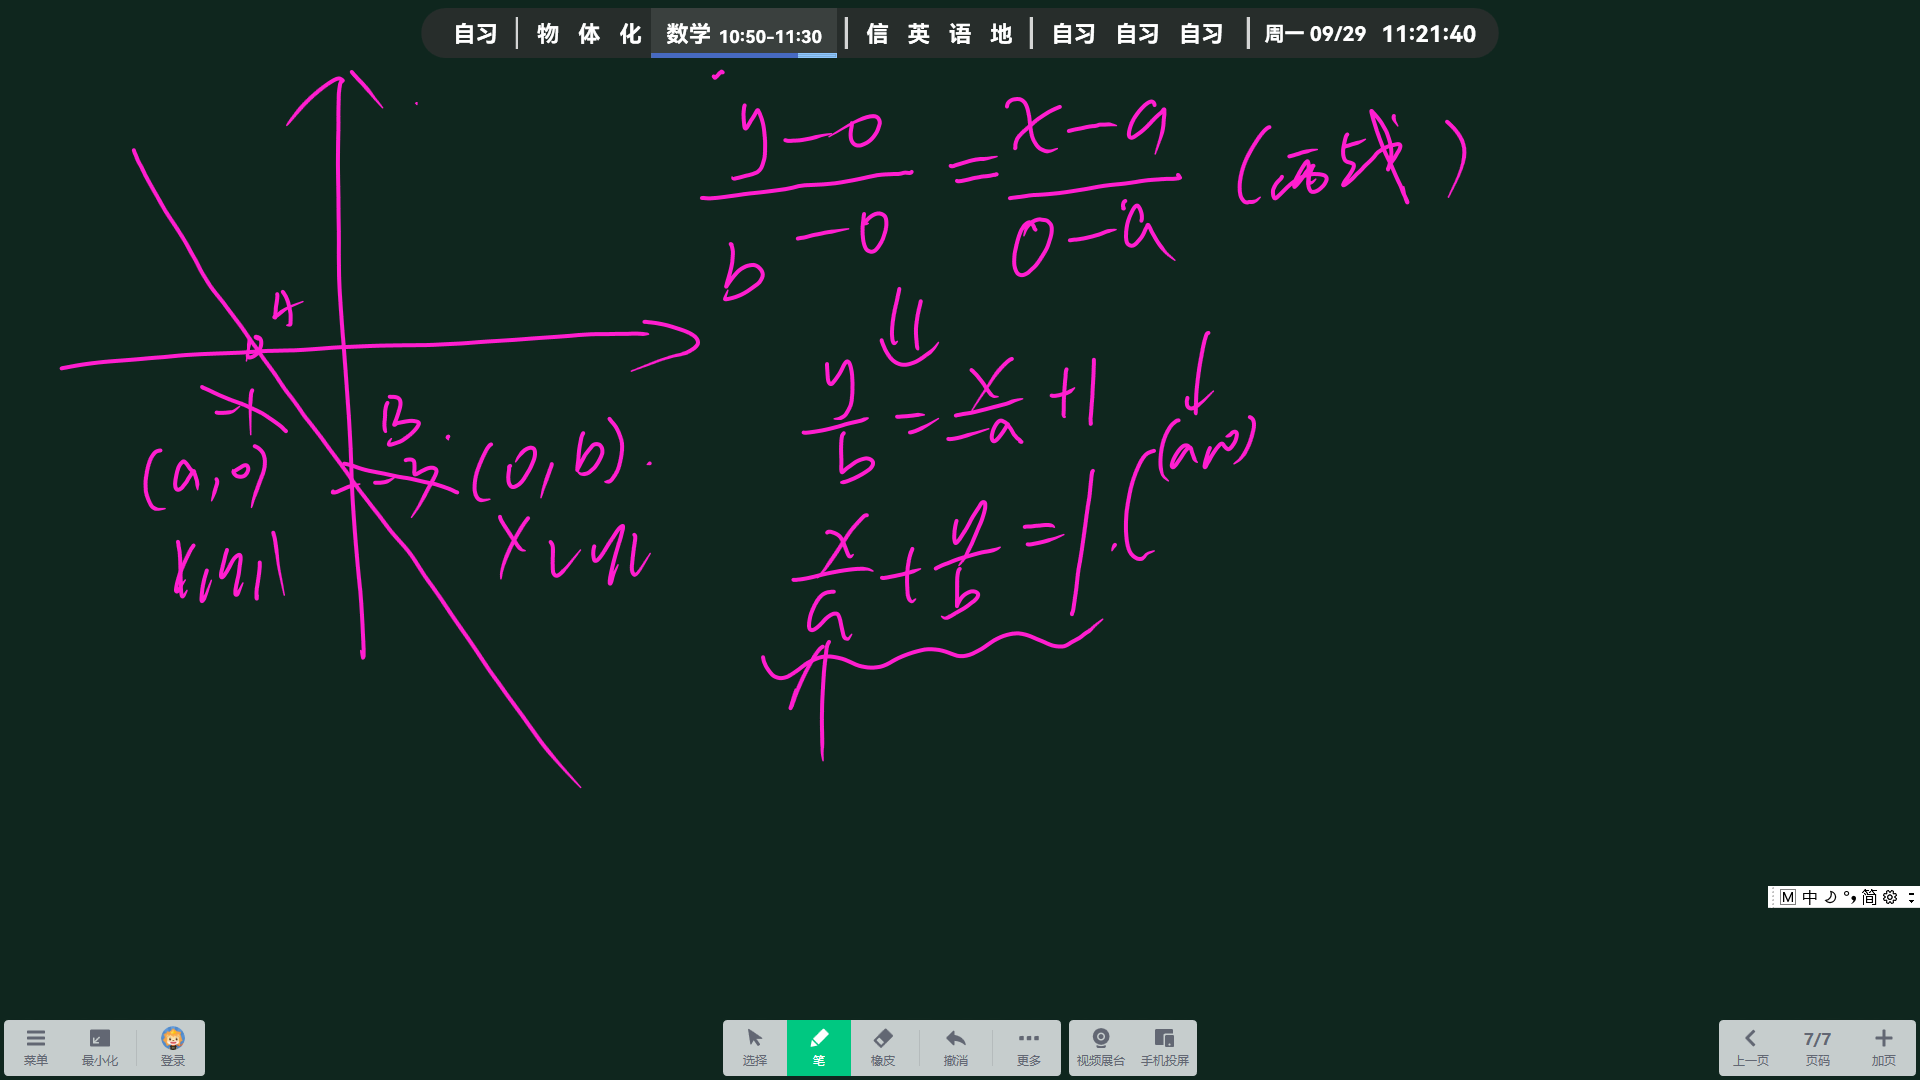 自习 | 物 体 化 数学 10:50-11:30 | 信 英 语 地 | 自习 自习 自习 | 周一 09/29 11:21:40
y-0 / b-0 = x-a / 0-a
y/b = x/-a + 1
x/a + y/b = 1.
A
B
(a,0)
(0,b).
x₁,y₁
x₂ y₂
M 中 °, 简
菜单 最小化 登录 选择 笔 橡皮 撤消 更多 视频展台 手机投屏 上一页 7/7 页码 加页